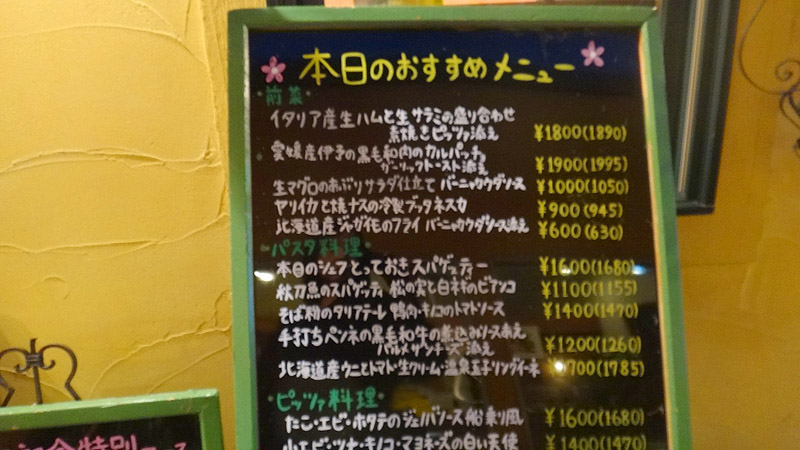 本日のおすすめメニュー
・前菜・
イタリア産生ハムと生サラミの盛り合わせ
素焼きピッツァ添え ¥1800(1890)
愛媛産伊予の黒毛和肉のカルパッチョ
ガーリックトースト添え ¥1900(1995)
生マグロのあぶりサラダ仕立て バーニャカウダソース ¥1000(1050)
ヤリイカと焼ナスの冷製プッタネスカ ¥900(945)
北海道産ジャガイモのフライ バーニャカウダソース添え ¥600(630)
・パスタ料理・
本日のシェフとっておきスパゲッティー ¥1600(1680)
秋刀魚のスパゲッティ 松の実と白ネギのビアンコ ¥1100(1155)
そば粉のタリアテーレ 鴨肉・キノコのトマトソース ¥1400(1470)
手打ちペンネの黒毛和牛の煮込みソース添え
パルメザンチーズ添え ¥1200(1260)
北海道産ウニとトマト生クリーム・温泉玉子リングイーネ 700(1785)
・ピッツァ料理・
たこ・エビ・ホタテのジェノバソース 船乗り風 ¥1600(1680)
小エビ・ツナ・キノコ・マヨネーズの白い天使 ¥1400(1470)
特別コース